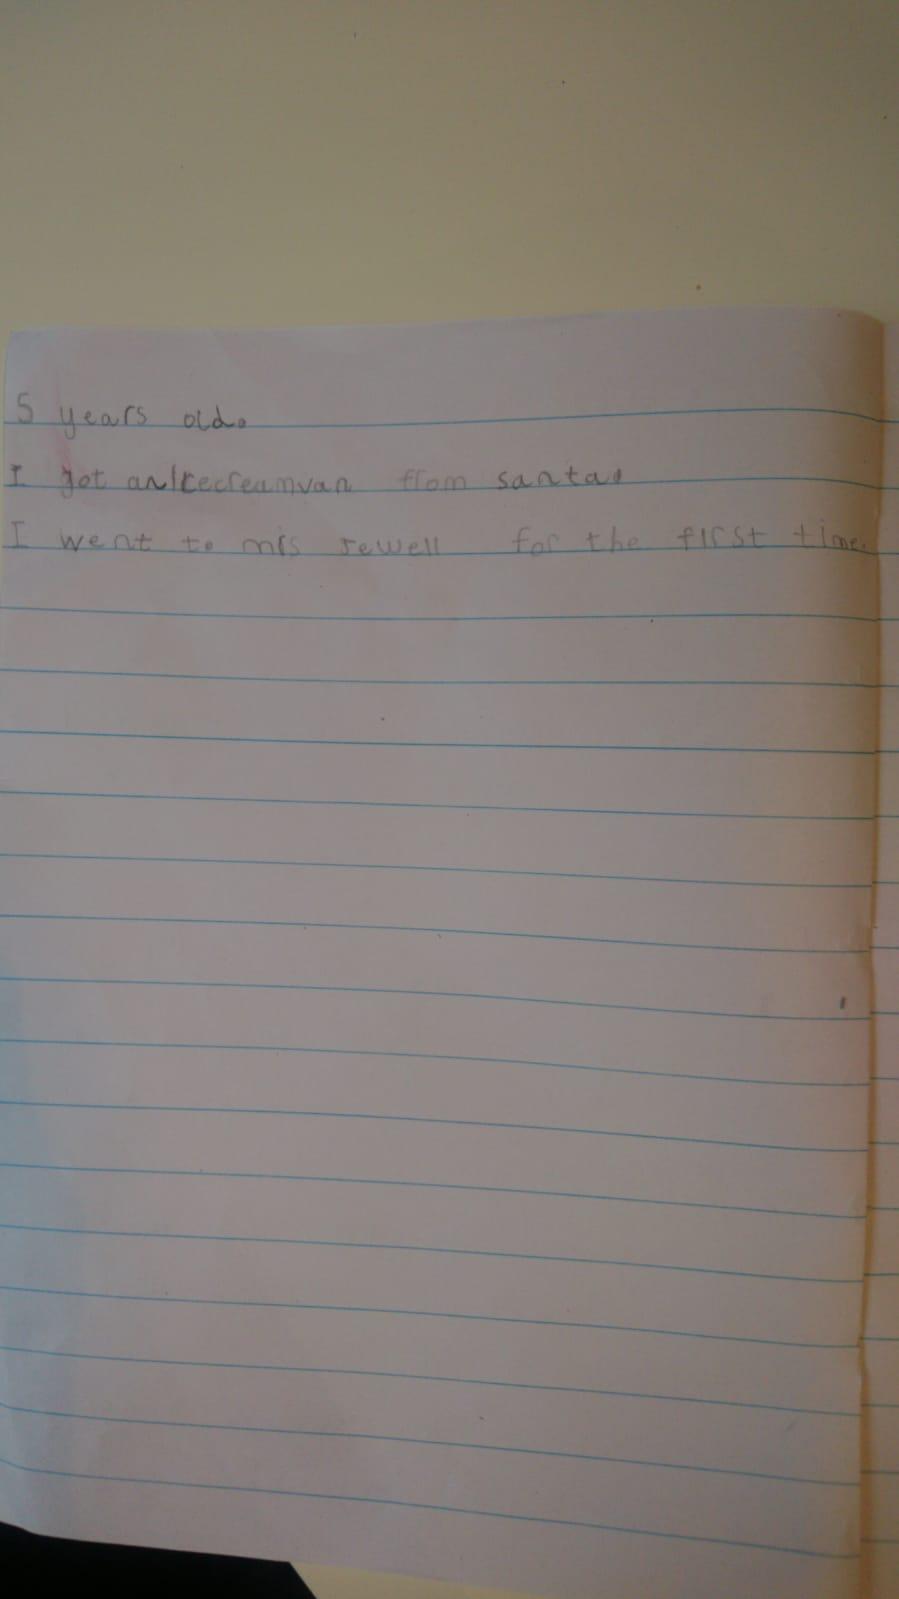 5 years old.
I got an Icecreamvan from santa.
I went to mrs Jewell for the first time.